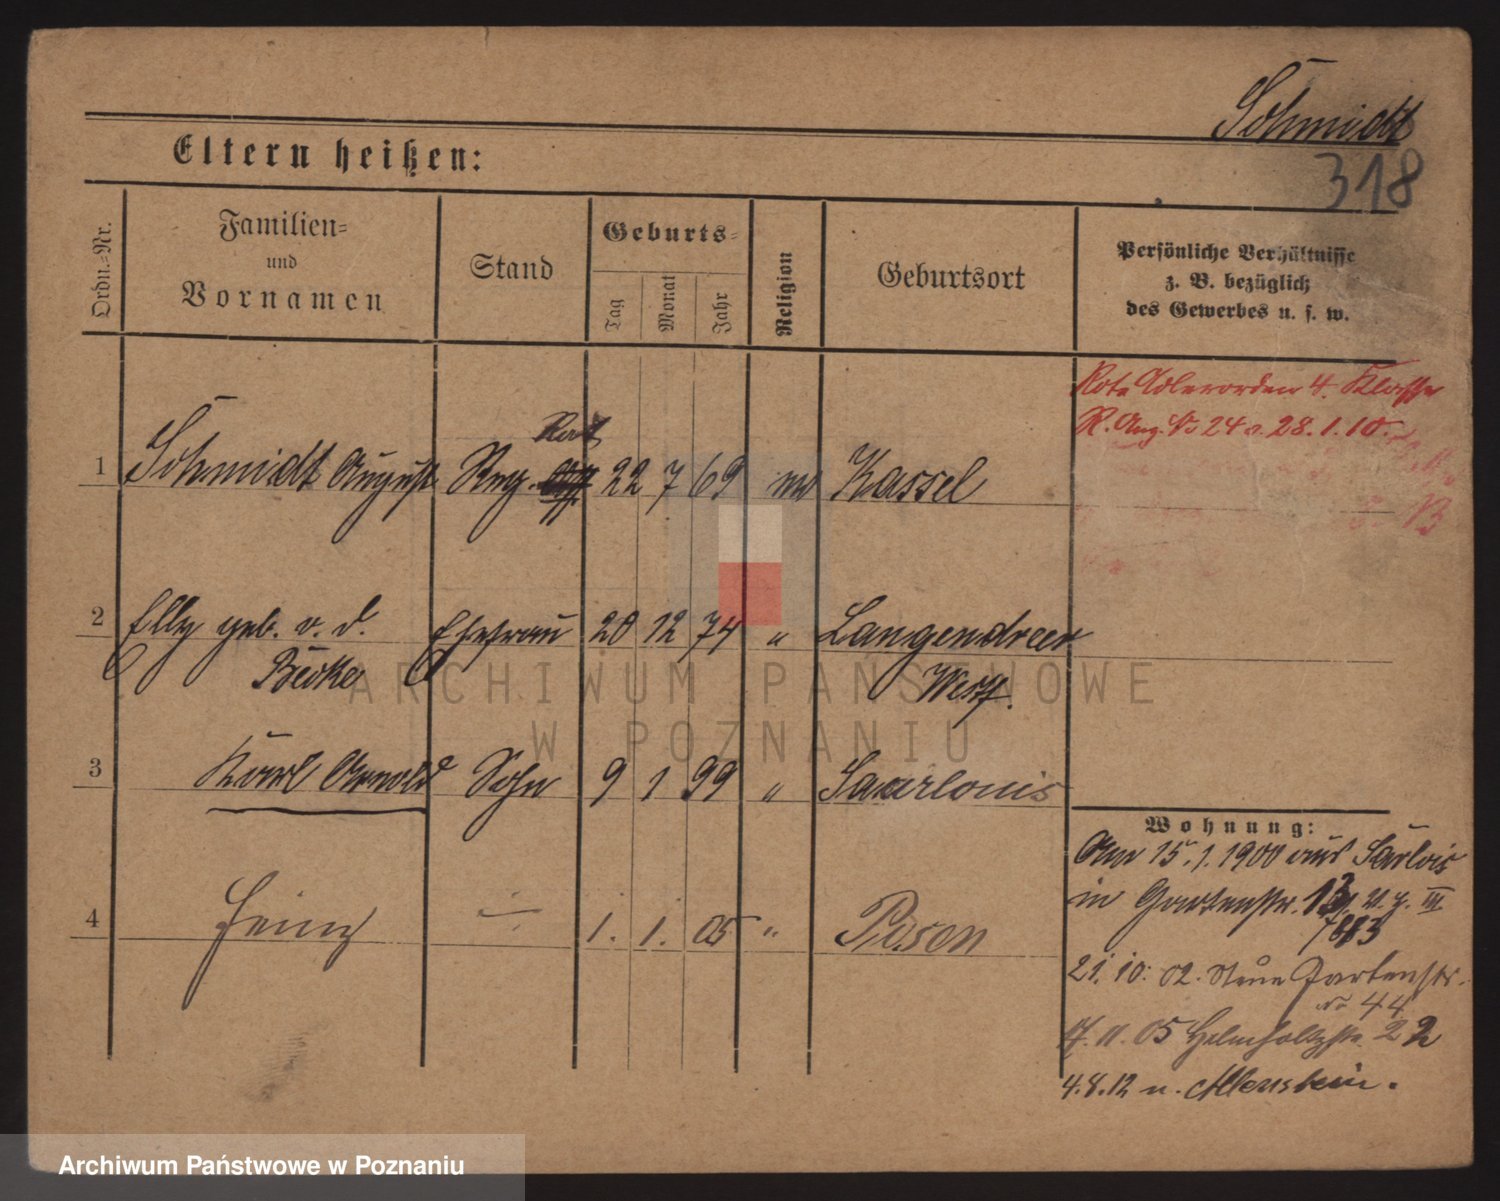 Schmidt
318
Eltern heißen:
Ordn.=Nr.
Familien=
und
Vornamen
Stand
Geburts=
Tag
Monat
Jahr
Religion
Geburtsort
Persönliche Verhältnisse
z. B. bezüglich
des Gewerbes u. s. w.
Rote Adlerorden 4. Klasse
R. Anz. No 24 v. 28.1.10.
Rat
1 Schmidt August Reg. 22 7 69 Kassel
2 Elly geb. v. d. Ehefrau 20 12 74 " Langendreer
Becke Westf.
3 Karl Arnold Sohn 9 1 99 " Saarlouis
Wohnung:
Am 15.1.1900 aus Sarlois
in Gartenstr. 13
4 Heinz 1. 1. 05 " Posen
21.10.02. Neue Gartenstr.
No 44
17.11.05 Helmholtzstr. 22
4.8.12 n. Allenstein.
ARCHIWUM PAŃSTWOWE
W POZNANIU
Archiwum Państwowe w Poznaniu